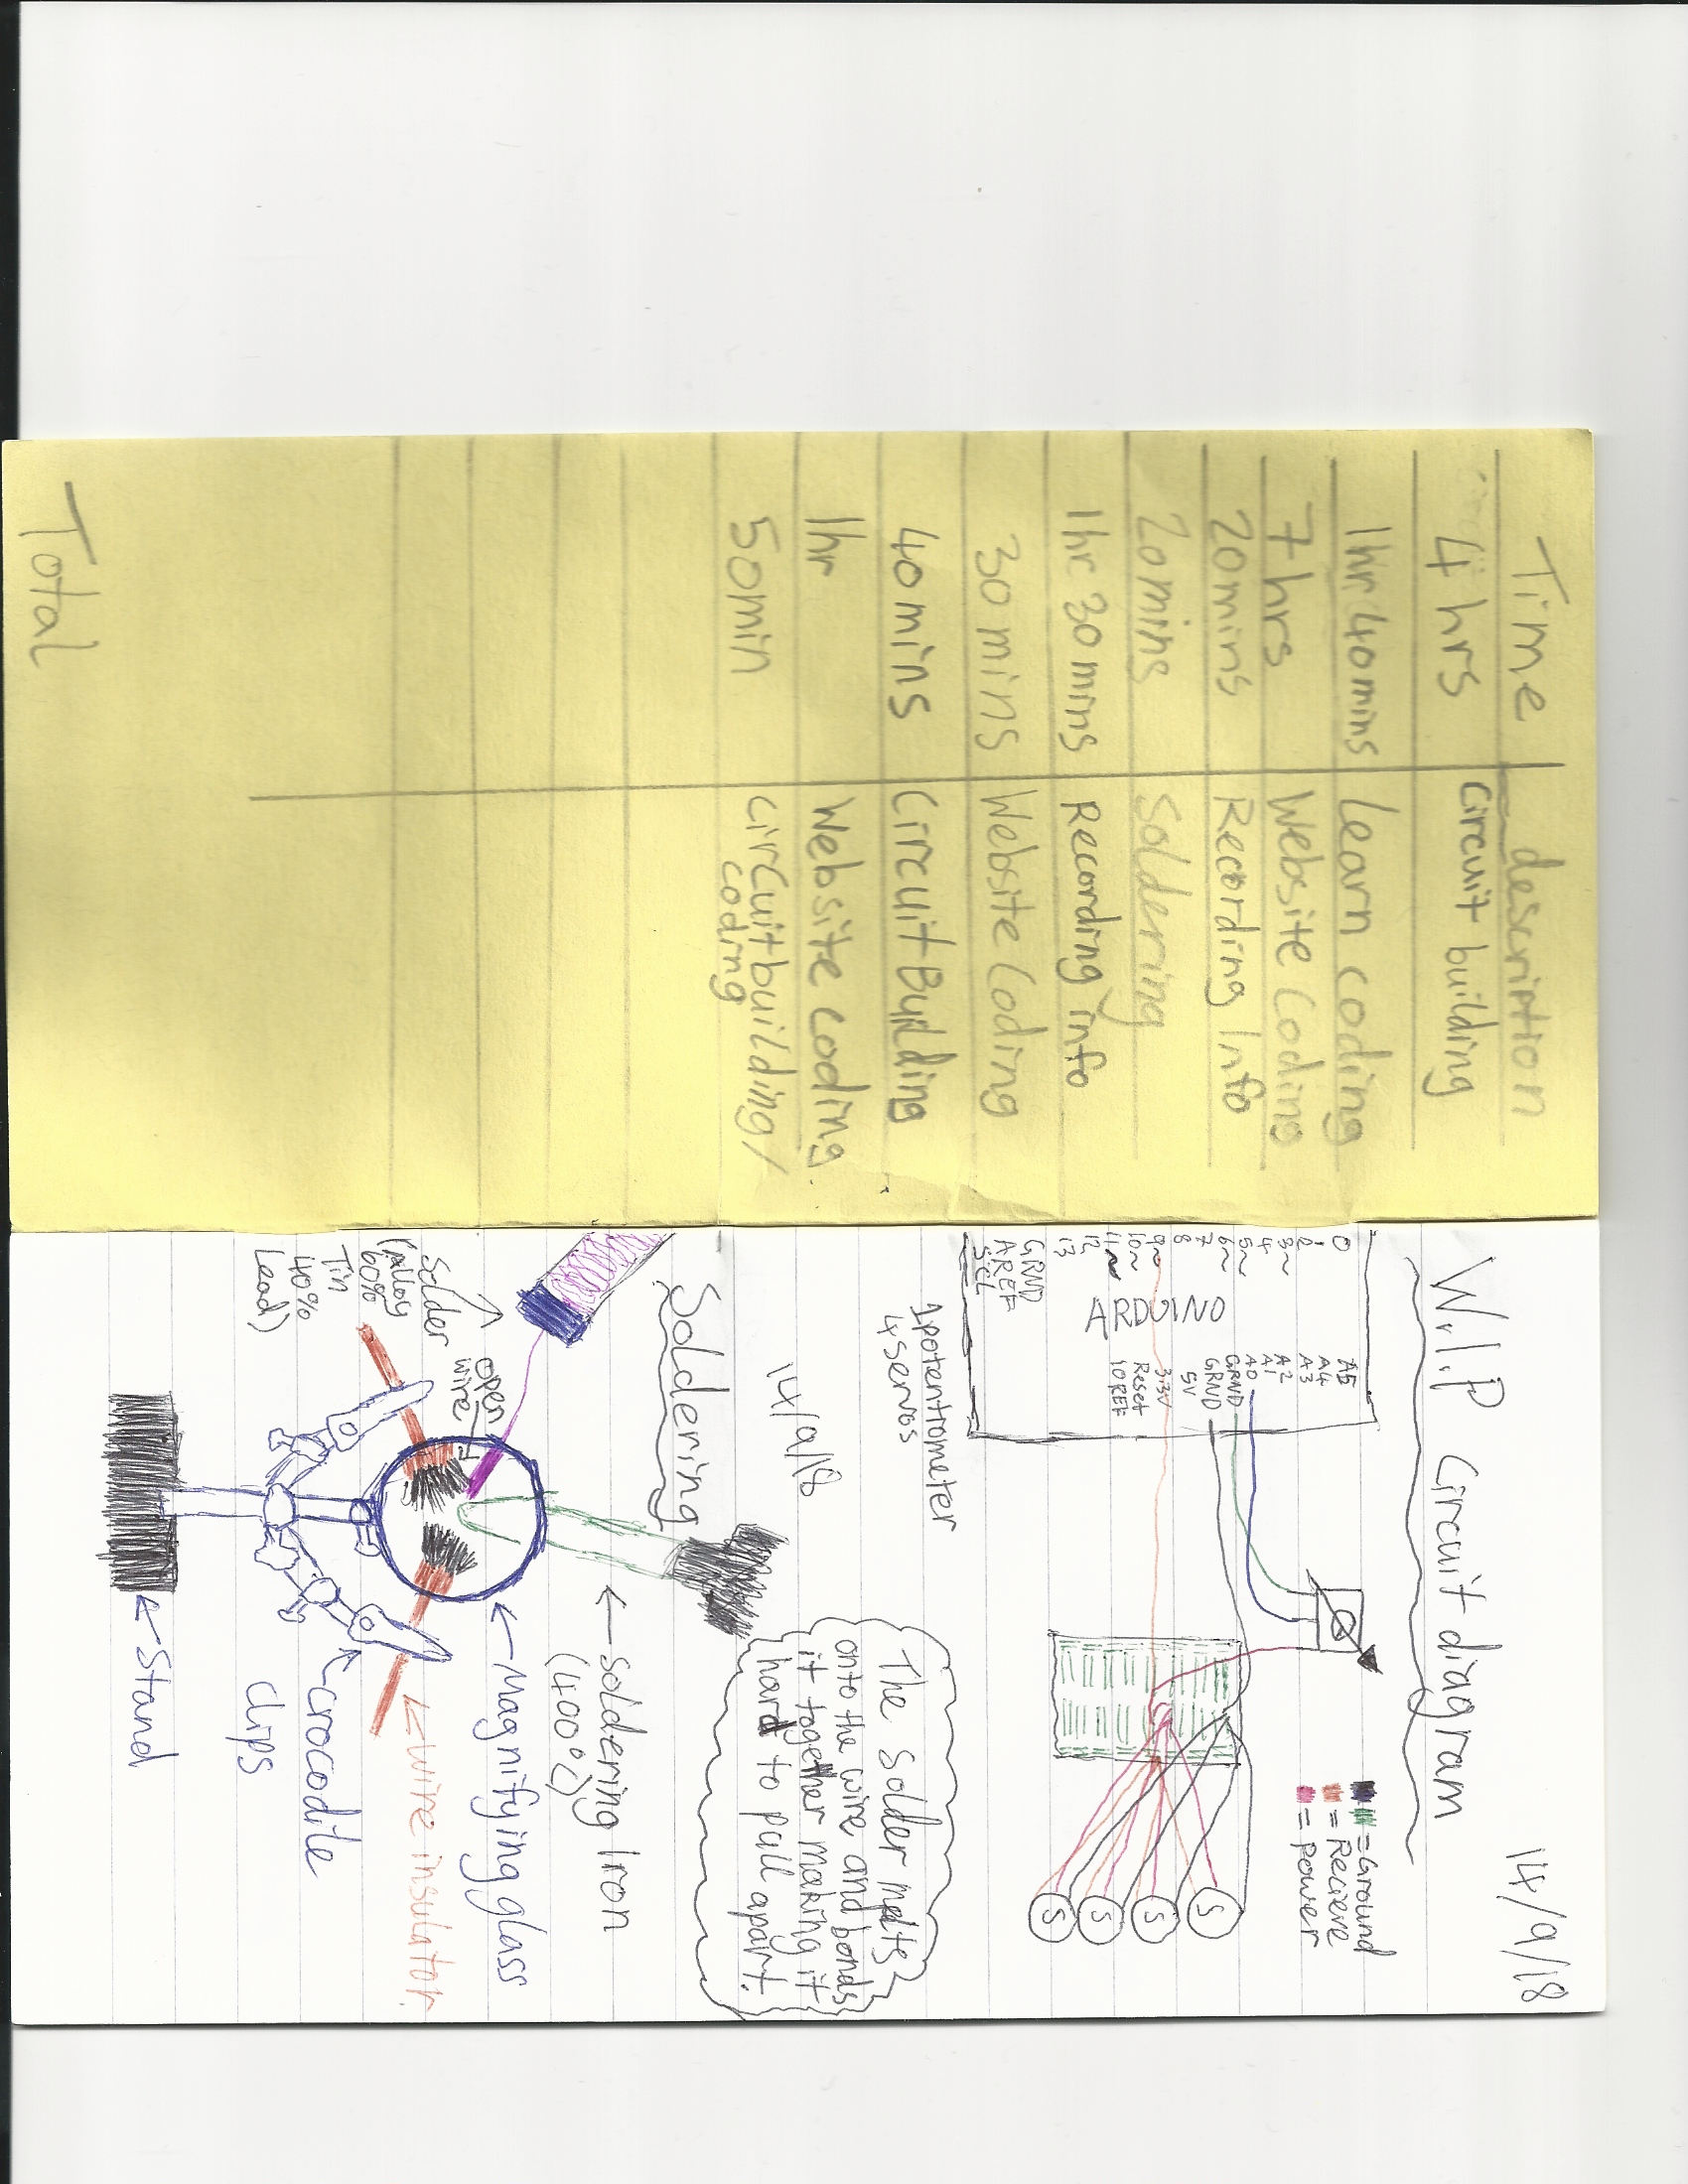 Time description
4 hrs Circuit building
1hr 40mins Learn coding
7 hrs Website Coding
20mins Recording Info
20mins Soldering
1hr 30mins Recording info
30 mins Website Coding
40 mins Circuit Building
1hr Website coding.
50min circuit building/
coding
Total
14/9/18
W.I.P Circuit diagram
= Ground
= Recieve
= Power
0
1
2
3~
4
5~
6~
7
8
9~
10~
11~
12
13
GRND
AREF
SCL
ARDUINO
A5
A4
A3
A2
A1
A0
GRND
GRND
5V
3.3V
Reset
IOREF
S
S
S
S
1 potentiometer
4 servos
14/9/18
Soldering
The solder melts
onto the wire and bonds
it together making it
hard to pull apart.
soldering Iron
(400°c)
Magnifying glass
open
wire
Solder
(alloy
60%
Tin
40%
Lead)
wire insulator.
crocodile
clips
Stand